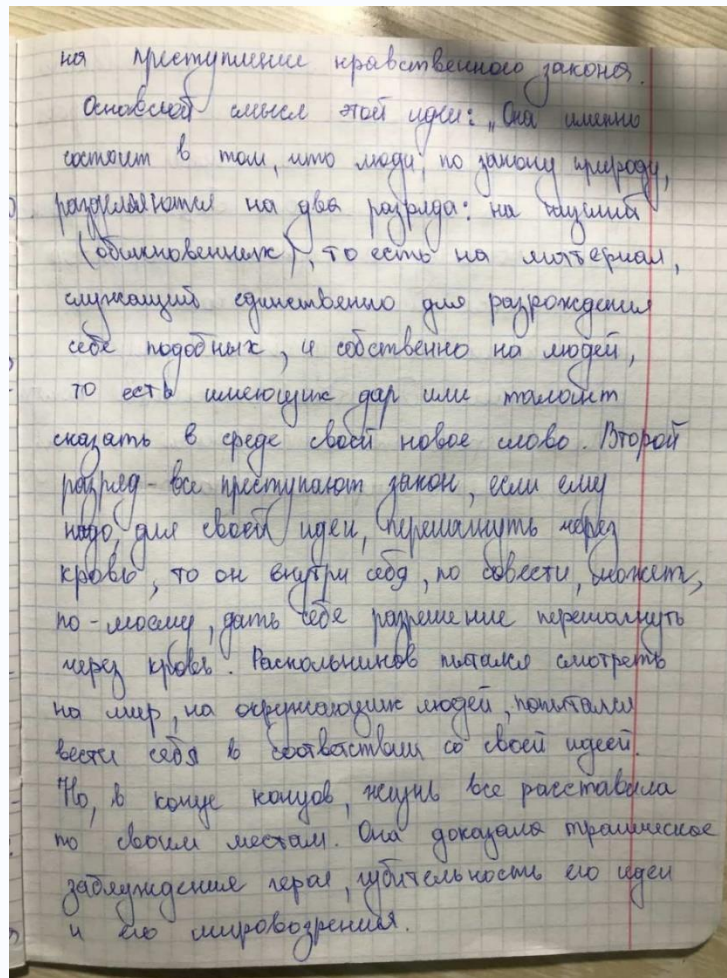 на преступление нравственного закона.
Основной смысл этой идеи: „Она именно
состоит в том, что люди, по закону природу,
разделяются на два разряда: на низший
(обыкновенных), то есть на материал,
служащий единственно для разрождения
себе подобных, и собственно на людей,
то есть имеющих дар или талант
сказать в среде своей новое слово. Второй
разряд - все преступают закон, если ему
надо, для своей идеи, перешагнуть через
кровь, то он внутри себя, по совести, может,
по-моему, дать себе разрешение перешагнуть
через кровь. Раскольников пытался смотреть
на мир, на окружающих людей, попытался
вести себя в соответствии со своей идеей.
Но, в конце концов, жизнь все расставила
по своим местам. Она доказала трагическое
заблуждение героя, губительность его идеи
и его мировозрения.